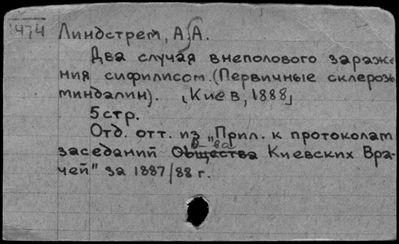 1474
Линдстрем, А.А.
Два случая внеполового зараже
ния сифилисом. (Первичные склерозы
миндалин). [Киев, 1888]
5 стр.
Отд. отт. из „Прил. к протоколам
заседаний О-ва Киевских Вра-
чей" за 1887/88 г.